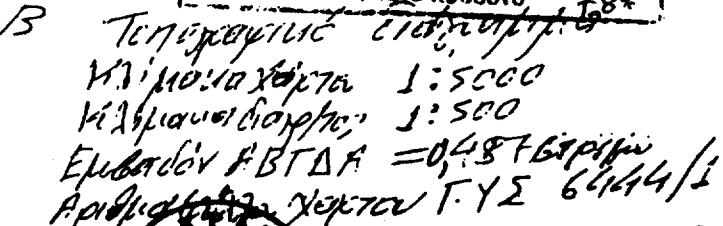 Β Τοπογραφικό διάγραμμα
Κλίμακα χάρτου 1:5000
Κλίμακα διαγρ/τος 1:500
Εμβαδόν ΑΒΓΔΑ =0,487 στρέμ
Αριθμ χάρτου Γ.Υ.Σ 6444/1